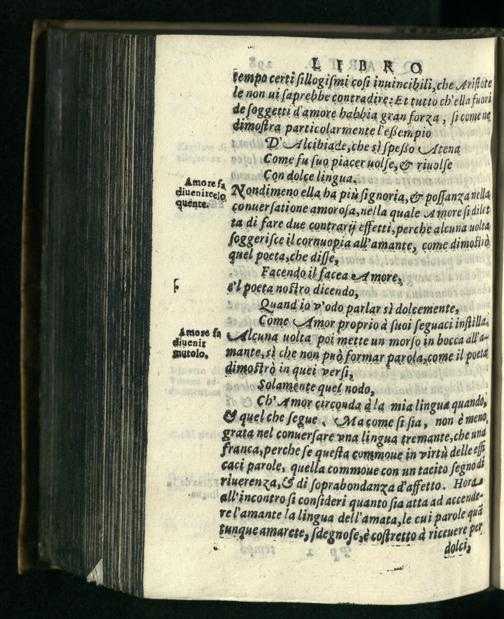 LIBRO
tempo certi sillogismi così inuincibili, che Aristote
le non ui saprebbe contradire: Et tutto ch'ella fuori
de soggetti d'amore habbia gran forza, si come ne
dimostra particolarmente l'essempio
D'Alcibiade, che sì spesso Atena
Come fu suo piacer uolse, & riuolse
Con dolce lingua.
Amore fa
diuenir elo
quente.
Nondimeno ella ha più signoria, & possanza nella
conuersatione amorosa, nella quale Amore si dilet
ta di fare due contrarij effetti, perche alcuna uolta
soggerisce il cornuopia all'amante, come dimostrò
quel poeta, che disse,
Facendo il facea Amore,
e'l poeta nostro dicendo,
Quand io v'odo parlar sì dolcemente,
Come Amor proprio à suoi seguaci instilla,
Amore fa
diuenir
mutolo,
Alcuna uolta poi mette un morso in bocca all'a-
mante, sì che non può formar parola, come il poeta
dimostrò in quei versi,
Solamente quel nodo,
Ch'Amor circonda à la mia lingua quando,
& quel che segue. Ma come si sia, non è meno,
grata nel conuersare vna lingua tremante, che una
franca, perche se questa commoue in virtù delle effi
caci parole, quella commoue con un tacito segno di
riuerenza, & di soprabondanza d'affetto. Hora
all'incontro si consideri quanto sia atta ad accende-
re l'amante la lingua dell'amata, le cui parole quā
tunque amarete, sdegnose, è costretto à riceuere per
dolci,